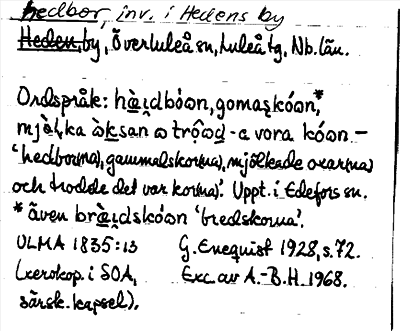 hedbor, inv. i Hedens by
Heden, by, Överluleå sn, Luleå tg. Nb. län.
Ordspråk: hà̱i̱dbóꙍn, gomaşkóꙍn,*
mjö̱̀ļka ò̱ksan ꙍ trô̱ꙍd-e vora kóꙍn –
‘hedborna, gammalskorna, mjölkade oxarna
och trodde det var korna’. Uppt. i Edefors sn.
* även brà̱i̱dskóꙍn ‘bredskorna’.
ULMA 1835:13 G. Enequist 1928, s. 72.
(xerokop. i SOA, Exc. av A.-B.H. 1968.
särsk. kapsel).